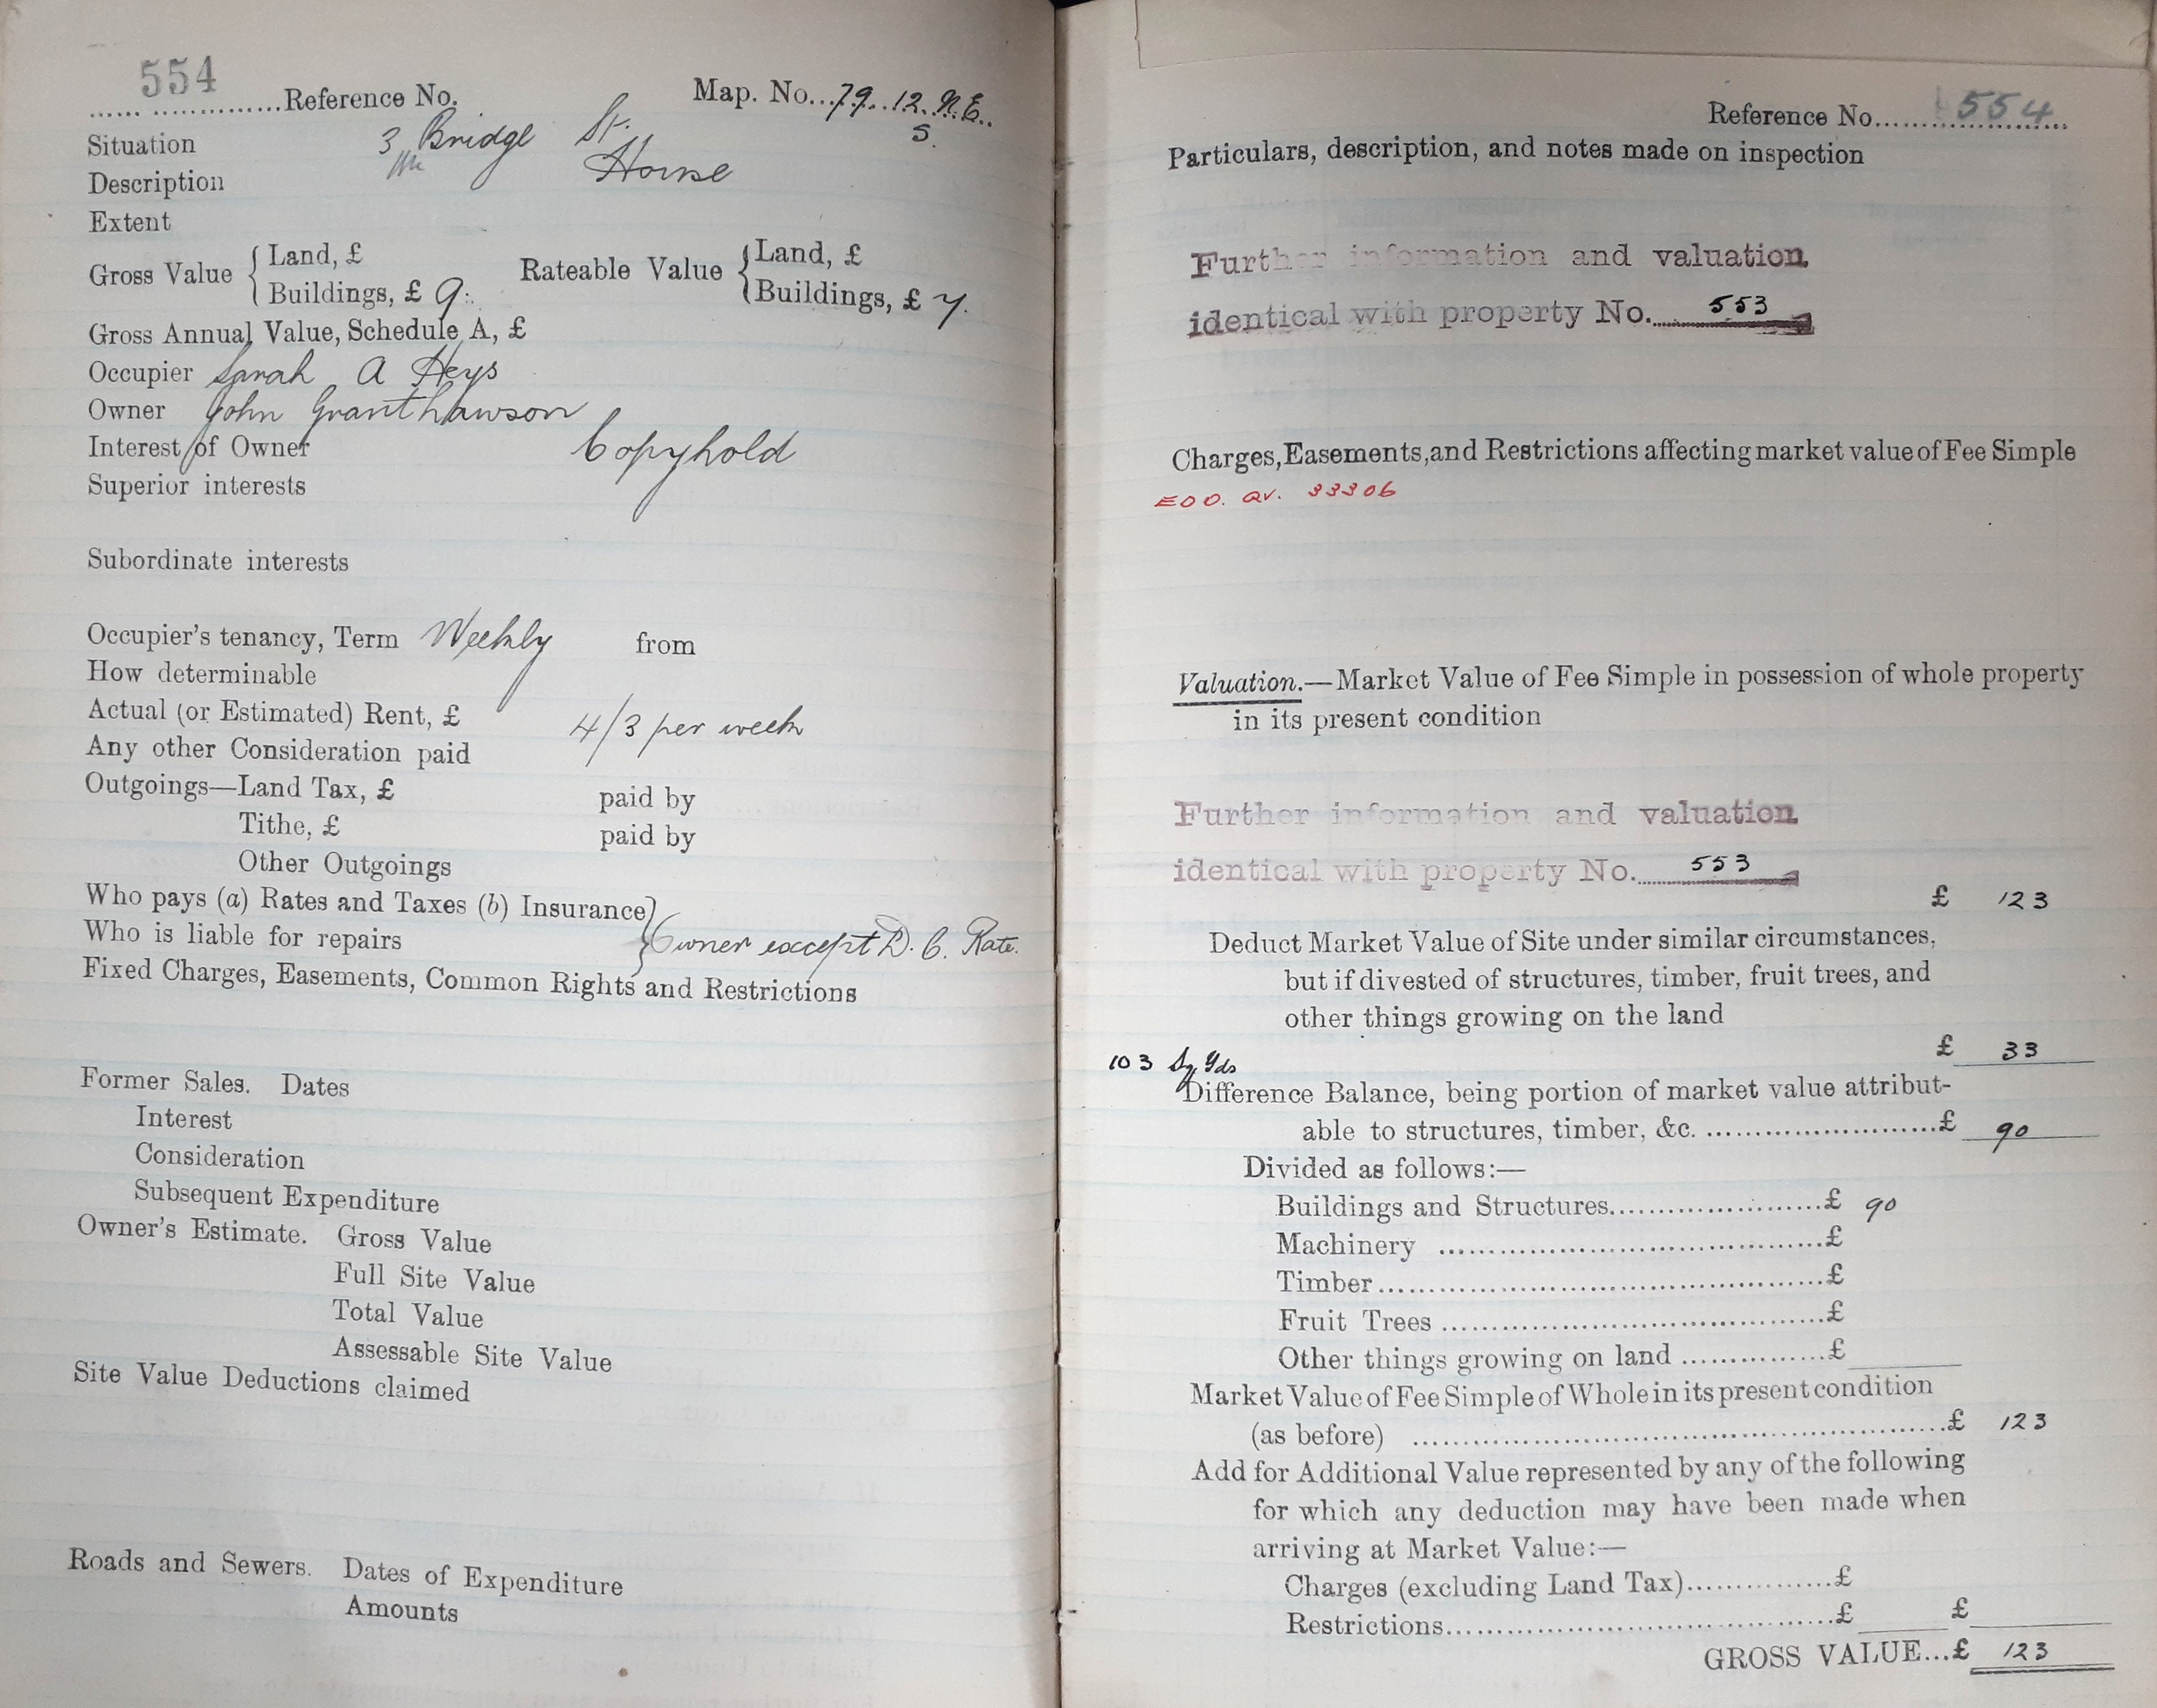 554
Reference No. Map. No. 79. 12. N.E.
S.
Situation 3 Bridge St.
Description House
Extent
Gross Value { Land, £ Rateable Value { Land, £
Buildings, £ 9. Buildings, £ 7.
Gross Annual Value, Schedule A, £
Occupier Sarah A Heys
Owner John Grant Lawson
Interest of Owner Copyhold
Superior interests
Subordinate interests
Occupier's tenancy, Term Weekly from
How determinable
Actual (or Estimated) Rent, £ 4/3 per week
Any other Consideration paid
Outgoings—Land Tax, £ paid by
Tithe, £ paid by
Other Outgoings
Who pays (a) Rates and Taxes (b) Insurance }
Who is liable for repairs } Owner except D. C. Rate.
Fixed Charges, Easements, Common Rights and Restrictions
Former Sales. Dates
Interest
Consideration
Subsequent Expenditure
Owner's Estimate. Gross Value
Full Site Value
Total Value
Assessable Site Value
Site Value Deductions claimed
Roads and Sewers. Dates of Expenditure
Amounts
Reference No. 554
Particulars, description, and notes made on inspection
Further information and valuation
identical with property No. 553
Charges, Easements, and Restrictions affecting market value of Fee Simple
33306
Valuation.—Market Value of Fee Simple in possession of whole property
in its present condition
Further information and valuation
identical with property No. 553
£ 123
Deduct Market Value of Site under similar circumstances,
but if divested of structures, timber, fruit trees, and
other things growing on the land
£ 33
103 Sq Yds
Difference Balance, being portion of market value attribut-
able to structures, timber, &c. £ 90
Divided as follows:—
Buildings and Structures £ 90
Machinery £
Timber £
Fruit Trees £
Other things growing on land £
Market Value of Fee Simple of Whole in its present condition
(as before) £ 123
Add for Additional Value represented by any of the following
for which any deduction may have been made when
arriving at Market Value:—
Charges (excluding Land Tax) £
Restrictions £ £
GROSS VALUE...£ 123